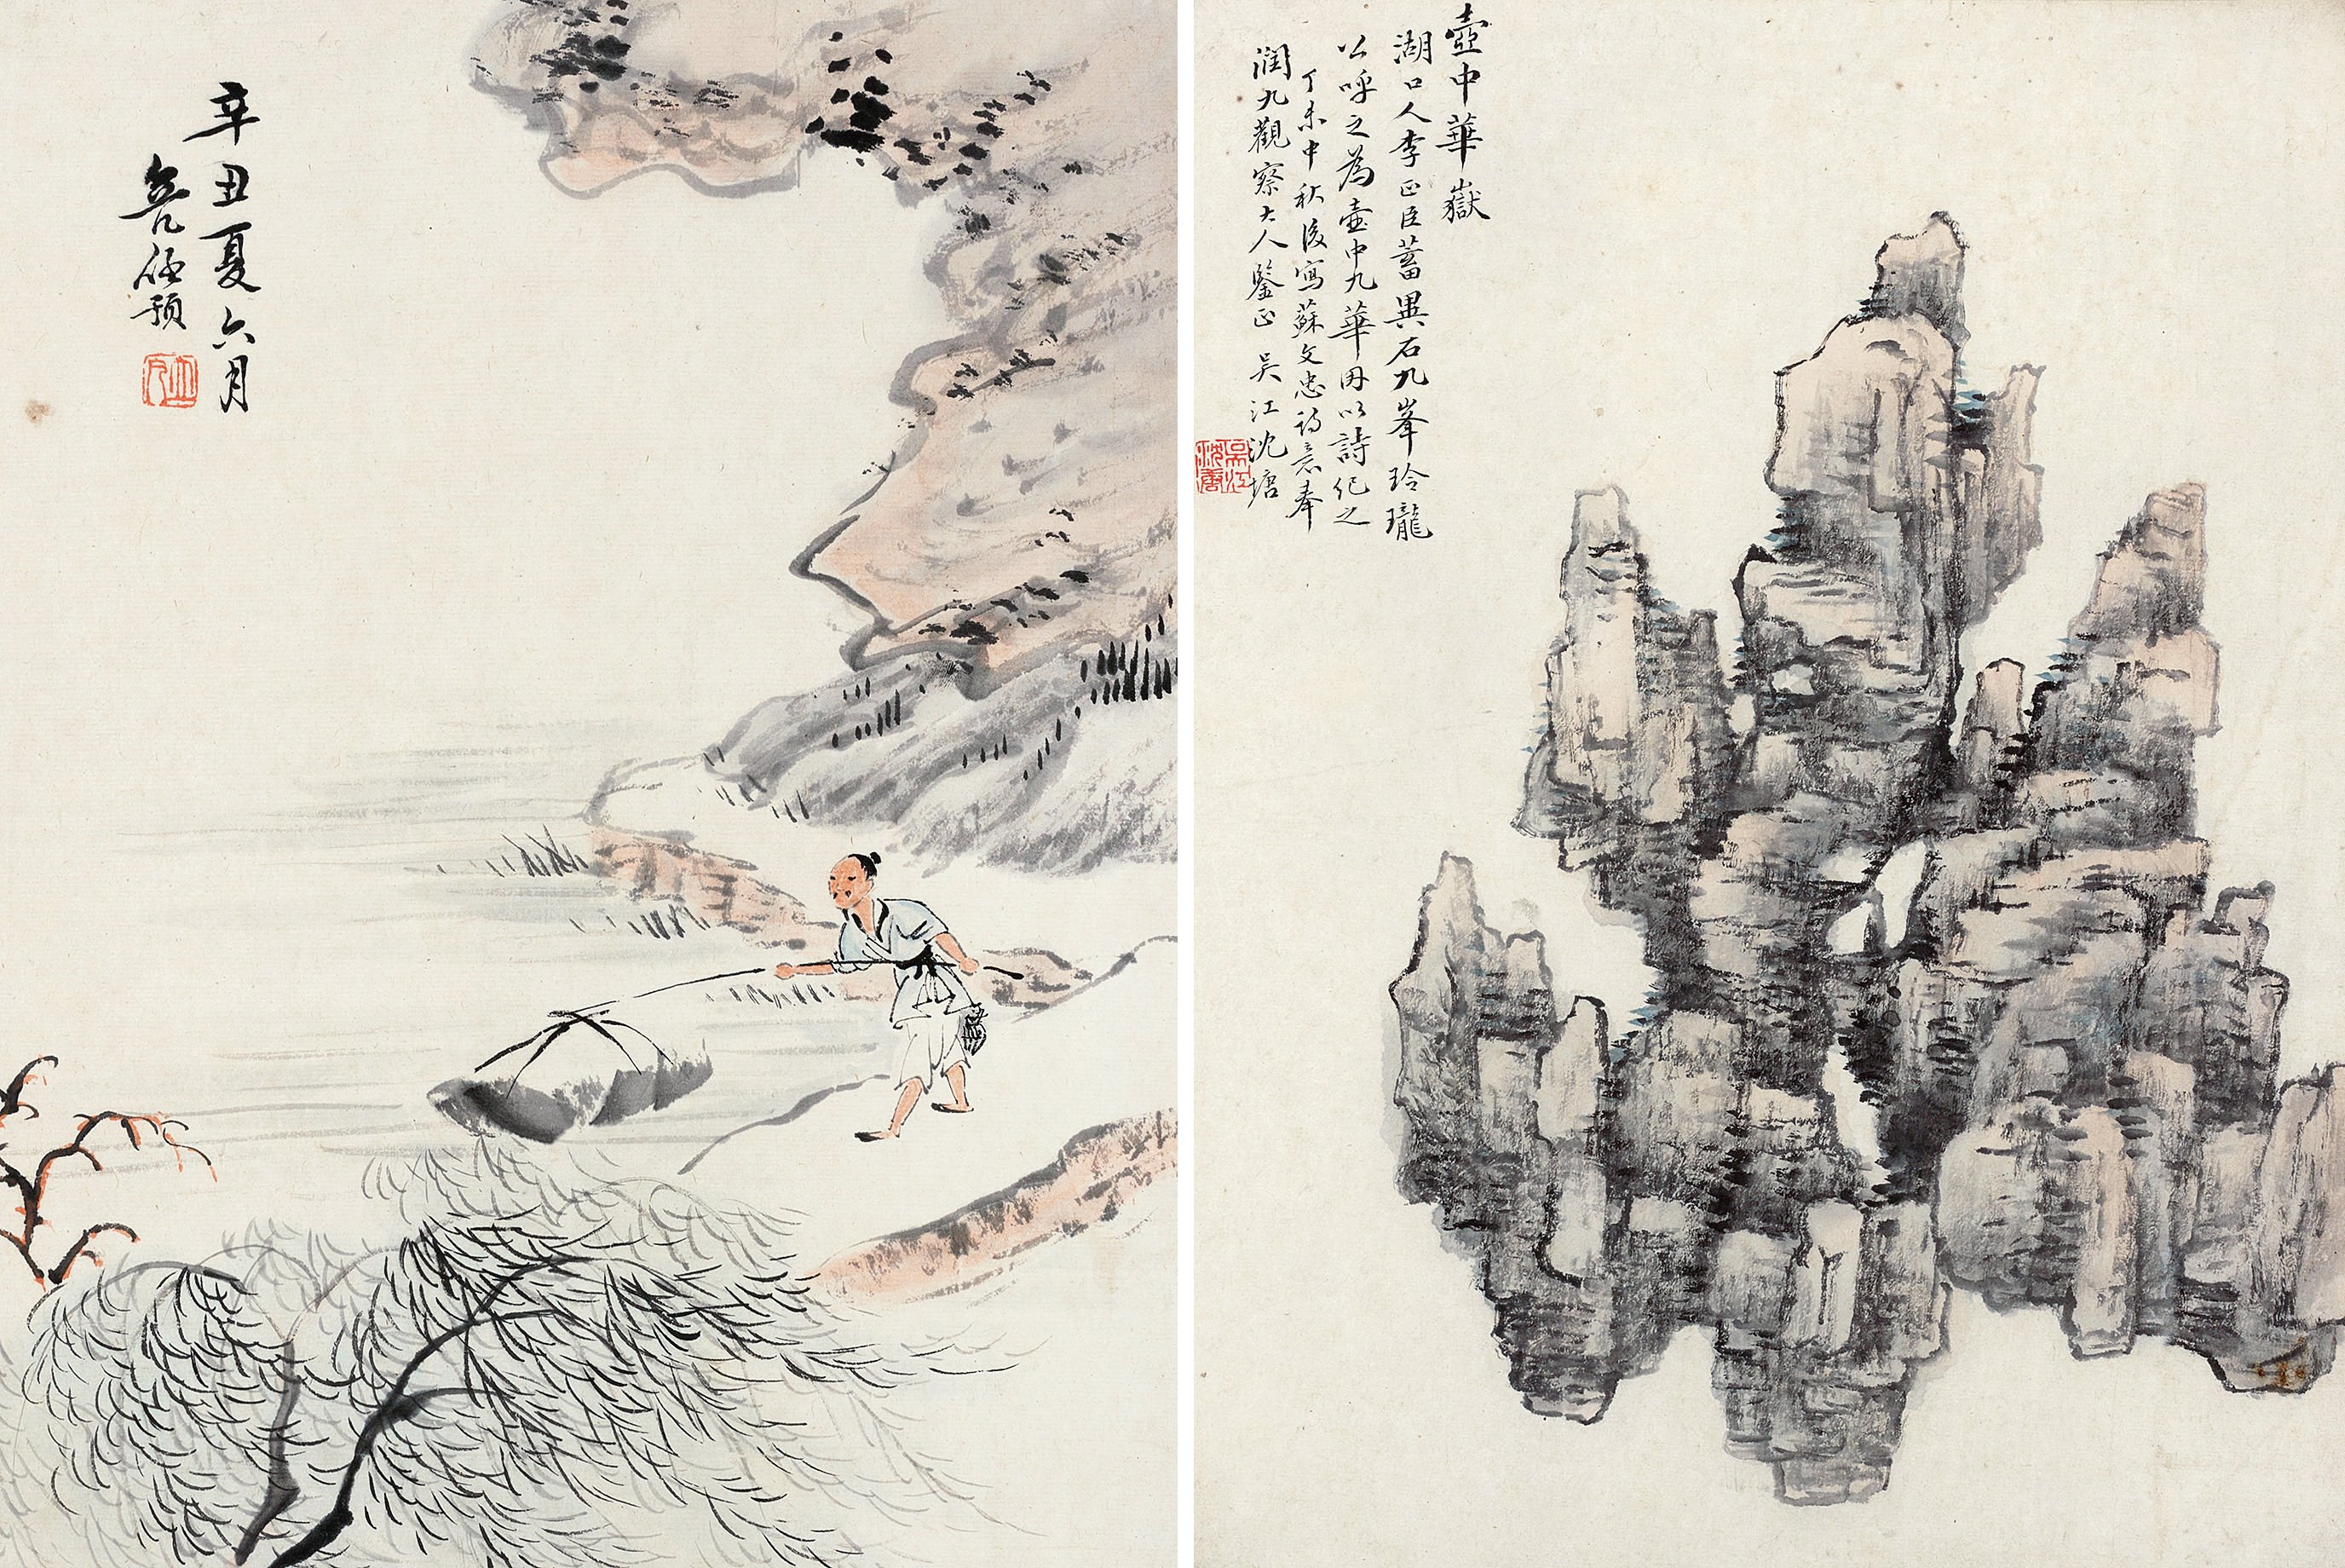 辛丑夏六月
立凡任預
立凡
壺中華嶽
湖口人李正臣蓄異石九峯玲瓏
公呼之為壺中九華因以詩紀之
丁未中秋後寫蘇文忠詩意奉
潤九觀察大人鑒正 吳江沈塘